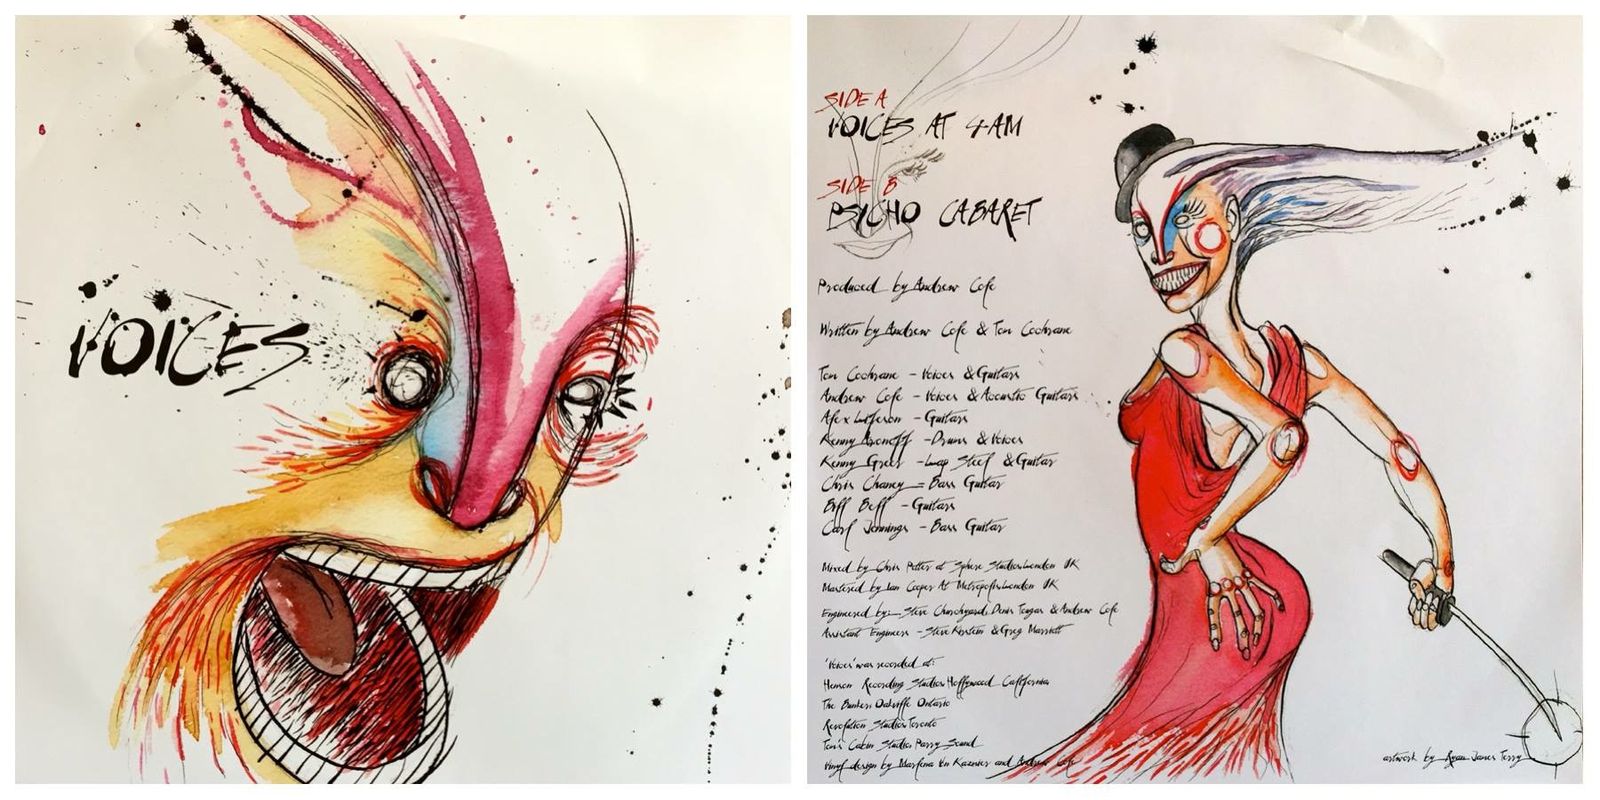 VOICES
SIDE A
VOICES AT 4AM
SIDE B
PSYCHO CABARET
Produced by Andrew Cole
Written by Andrew Cole & Tom Cochrane
Tom Cochrane - Voices & Guitars
Andrew Cole - Voices & Acoustic Guitars
Alex Lifeson - Guitars
Kenny Aronoff - Drums & Voices
Kenny Greer - Lap Steel & Guitar
Chris Chaney - Bass Guitar
Biff Beff - Guitars
Carl Jennings - Bass Guitar
Mixed by Chris Potter at Sphere Studios London UK
Mastered by Ian Cooper At Metropolis London UK
Engineered by: Steve Churchyard, Denis Tougas & Andrew Cole
Assistant Engineers - Steve Kirstein & Greg Marriott
'Voices' was recorded at:
Henson Recording Studios Hollywood California
The Bunker Oakville Ontario
Revolution Studios Toronto
Tom's Cabin Studios Parry Sound
Vinyl design by Marlena and Andrew Cole
artwork by Ryan James Terry